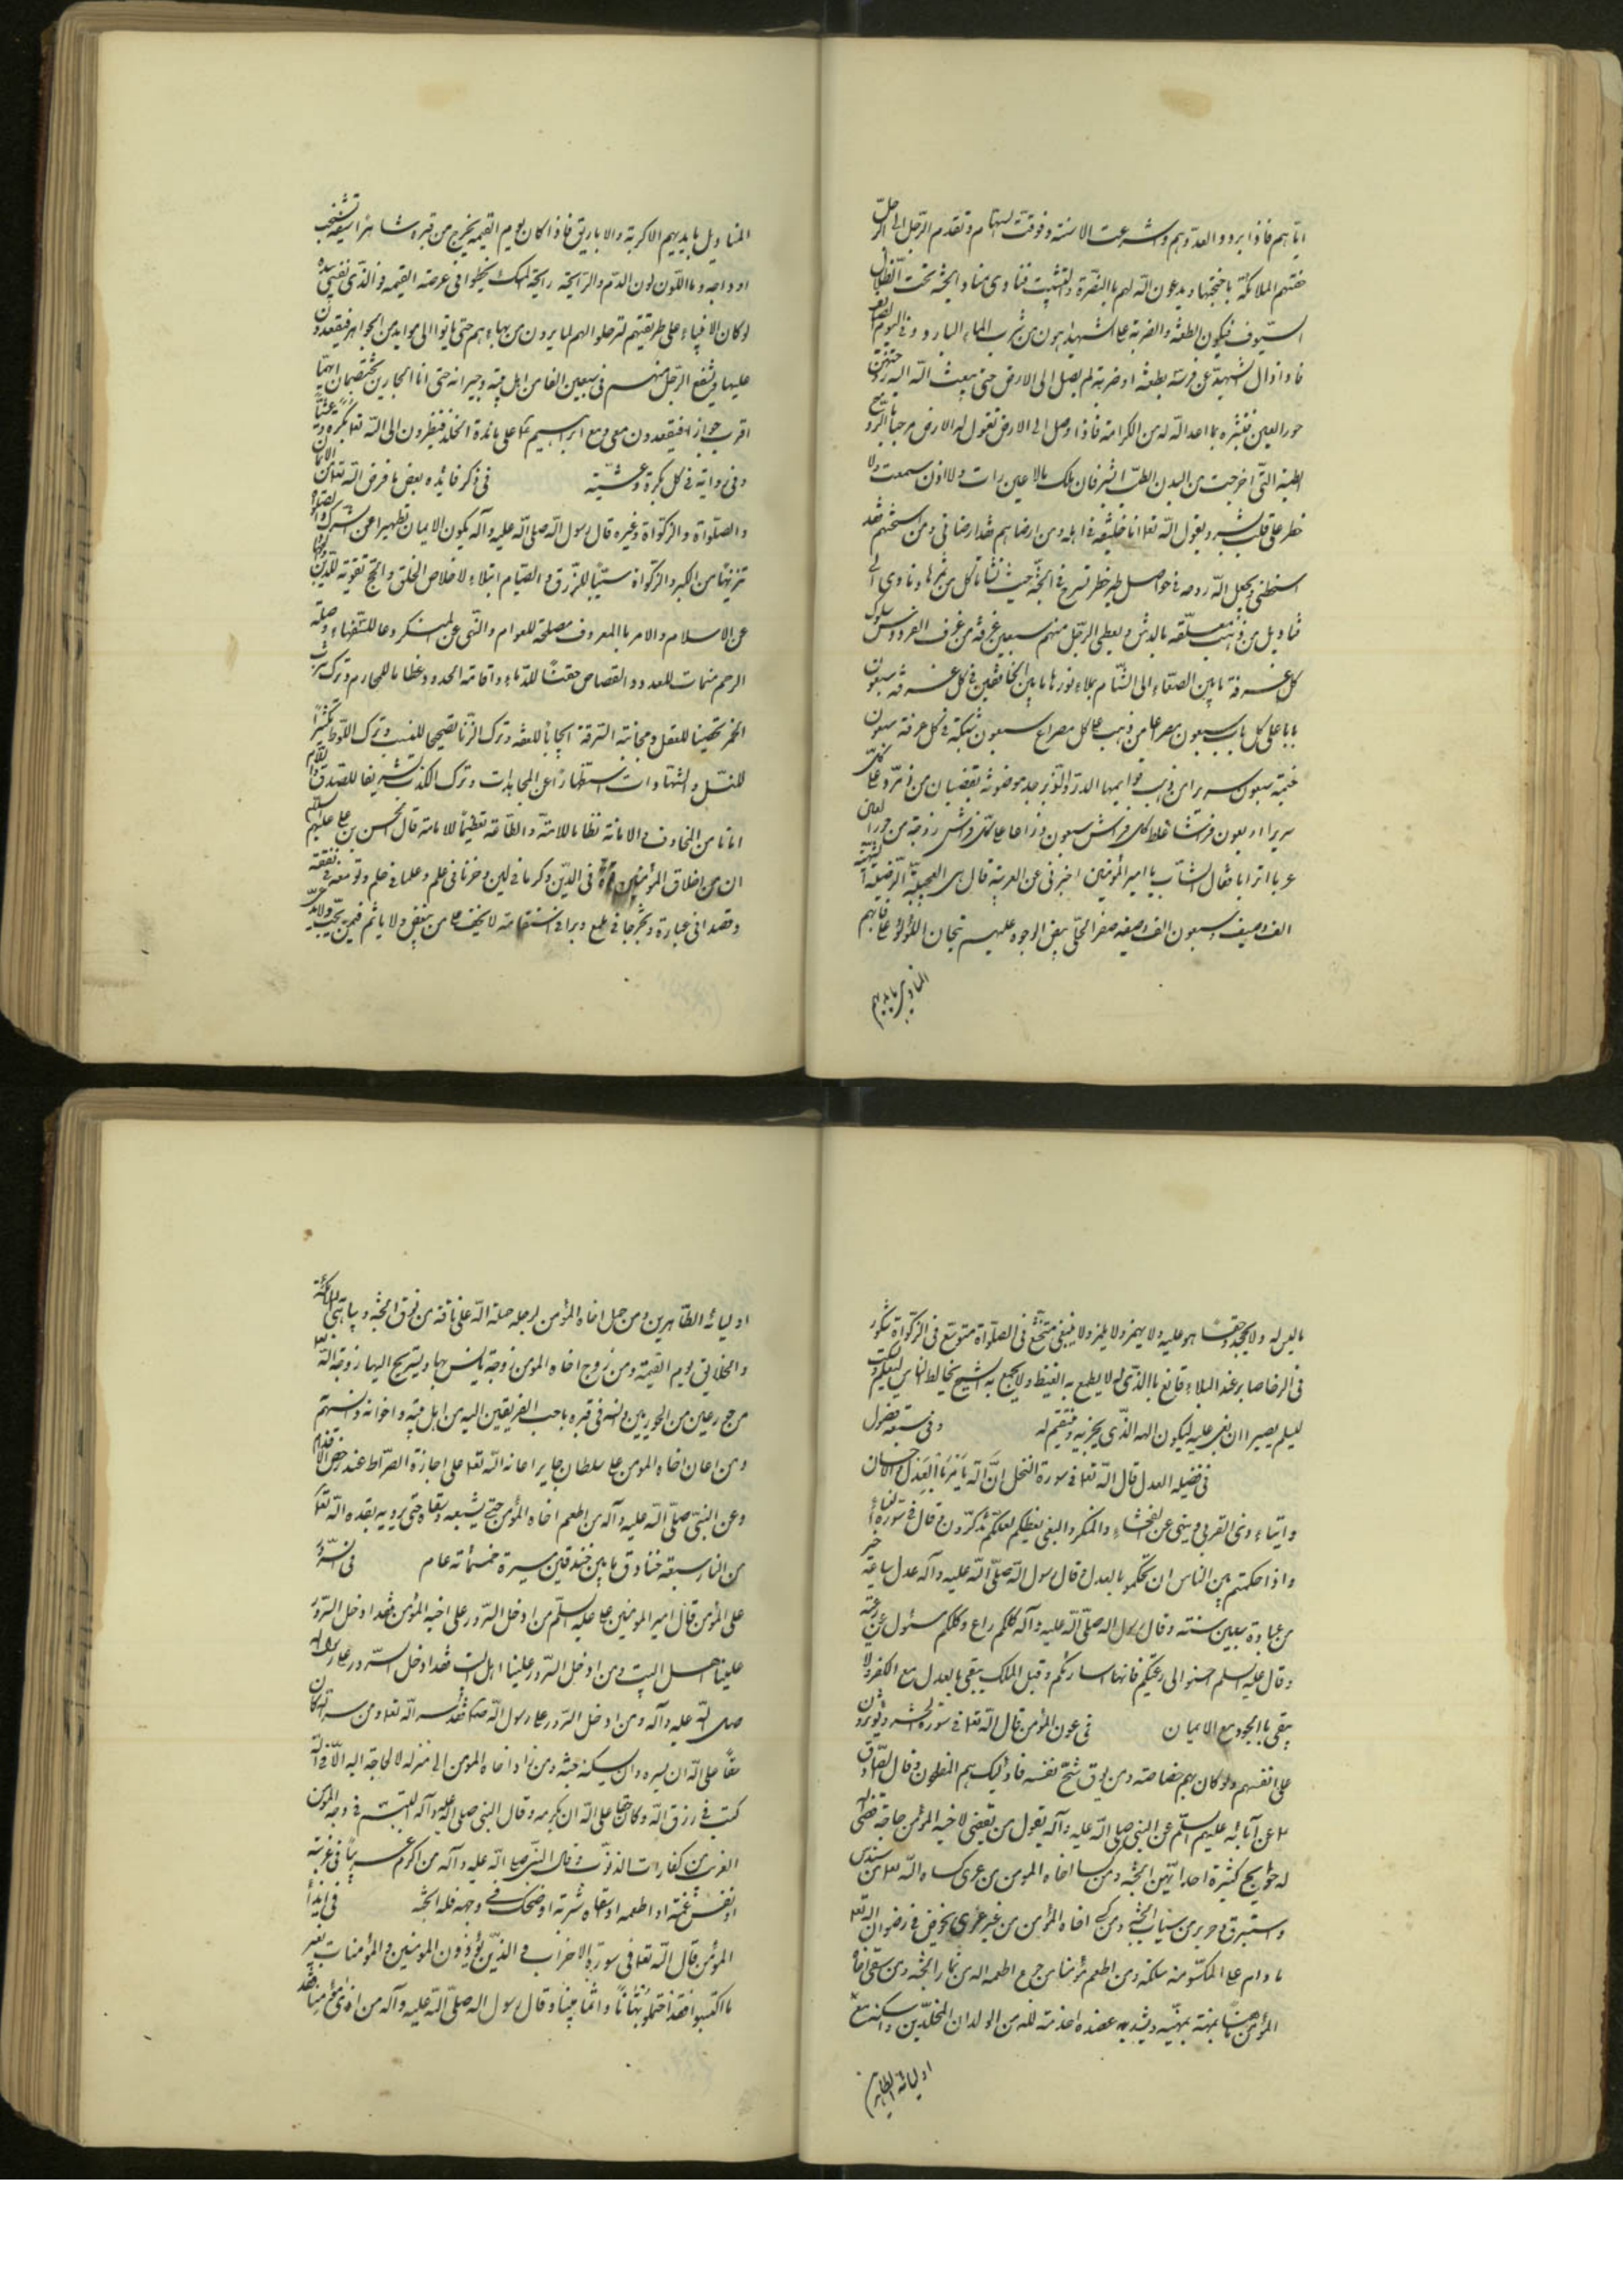 اياهم فاذا بردوا لعدوهم و شرعت الاسنة و فوقت السهام و تقدم الرجل الى الرجل
حفتهم الملائكة باجنحتها و يدعون الله لهم بالنصرة و التثبيت فنادى مناد الجنة تحت ظلال
السيوف فيكون الطعنة و الضربة على الشهيد اهون من شرب الماء البارد فى اليوم
فاذا زال الشهيد عن فرسه بطعنة او ضربة لم يصل الى الارض حتى يبعث الله اليه زوجته من
حور العين فتبشره بما اعد الله له من الكرامة فاذا وصل الى الارض تقول له الارض مرحبا بالروح
الطيبة التى اخرجت من البدن الطيب ابشر فان لك مالا عين رات و لا اذن سمعت و لا
خطر على قلب بشر و يقول الله تعا انا خليفته فى اهله و من ارضاهم فقد ارضانى و من اسخطهم فقد
اسخطنى و يجعل الله روحه فى حواصل طير خضر تسرح فى الجنة حيث تشاء تاكل من ثمرها و تاوى الى
قناديل من ذهب معلقة بالعرش و يعطى الرجل منهم سبعين غرفة من غرف الفردوس سلوك
كل غرفة ما بين الصنعاء الى الشام يملاء نورها ما بين الخافقين فى كل غرفة سبعون
بابا على كل باب سبعون مصراعا من ذهب على كل مصراع سبعون شبكة فى كل غرفة سبعون
خيمة سبعون سريرا من ذهب قوايمها الدر و الزبرجد موضونة بقضبان من زمرد على كل
سرير اربعون فرشا غلظ كل فراش سبعون ذراعا على كل فراش زوجة من حور العين
عربا اترابا فقال الشاب يا امير المؤمنين اخبرنى عن العربة قال هى الغنجة الرضية
الف وصيف و سبعون الف وصيفة صفر الحلى بيض الوجوه عليهم تيجان اللؤلؤ على رقابهم
المناديل بايديهم
المناديل بايديهم الاكربة و الاباريق فاذا كان يوم القيمة يخرج من قبره شاهرا سيفه تشخب
اوداجه دما اللون لون الدم و الرايحة رايحة المسك يخطوا فى عرصة القيمة فو الذى نفسى بيده
لو كان الانبياء على طريقهم لترجلوا لهم لما يرون من بهاءهم حتى ياتوا الى موايد من الجواهر فيقعدون
عليها و يشفع الرجل منهم فى سبعين الفا من اهل بيته و جيرانه حتى ان الجارين يختصمان ايهما
اقرب جوازا فيقعدون معى و مع ابراهيم على مائدة الخلد فينظرون الى الله تعا بكرة و عشيا
و فى رواية فى كل بكرة و عشية فى ذكر فايده بعض ما فرض الله تعا من الايمان
و الصلواة و الزكواة و غيره قال رسول الله صلى الله عليه و آله يكون الايمان تطهيرا عن الشرك و الصلواة
تنزيها من الكبر و الزكواة سببا للرزق و الصيام ابتلاء لاخلاص الخلق و الحج تقوية للدين
عن الاسلام و الامر بالمعروف مصلحة للعوام و النهى عن المنكر ردعا للسفهاء و صلة
الرحم منمات للعدد و القصاص حقنا للدماء و اقامة الحدود اعظاما للمحارم و ترك شرب
الخمر تحصينا للعقل و مجانبة السرقة ايجابا للعفة و ترك الزنا تصحيحا للنسب و ترك اللوط تكثيرا
للنسل و الشهادات استظهارا عن المجاحدات و ترك الكذب تشريفا للصدق و السلام
امانا من المخاوف و الامانة نظاما للامة و الطاعة تعظيما للامامة قال الحسن بن على عليهم السلم
ان من اخلاق المؤمنين قوة فى الدين و كرما فى لين و حزما فى علم و علما فى حلم و توسعه فى نفقة
و قصدا فى عبادة و تحرجا فى طمع و برا فى استقامة لا يحيف على من يبغض و لا ياثم فيمن يحب و لا يدعى
ما ليس له و لا يجحد حقا هو عليه و لا يهمز و لا يلمز و لا يبغى متخشع فى الصلواة متوسع فى الزكواة شكور
فى الرخا صابر عند البلاء قانع بالذى له لا يطمع به الغيظ و لا يجمع به الشح يخالط الناس ليعلم و يسكت
ليسلم يصبر ان بغى عليه ليكون الهه الذى يجزيه و ينتقم له و فى ستة فصول
فى فضيلة العدل قال الله تعا فى سورة النحل ان الله يامر بالعدل و الاحسان
و ايتاء ذى القربى و ينهى عن الفحشاء و المنكر و البغى يعظكم لعلكم تذكرون و قال فى سورة النساء
و اذا حكمتم بين الناس ان تحكموا بالعدل و قال رسول الله صلى الله عليه و آله عدل ساعة خير
من عبادة سبعين سنة و قال رسول الله صلى الله عليه و آله كلكم راع و كلكم مسئول عن رعيته
و قال عليه السلم احسنوا الى رعيتكم فانها اساراكم و قيل الملك يبقى بالعدل مع الكفر و لا
يبقى بالجور مع الايمان فى عون المؤمن قال الله تعا فى سورة الحشر و يؤثرون
على انفسهم و لو كان بهم خصاصة و من يوق شح نفسه فاولئك هم المفلحون و قال الصادق
عن آبائه عليهم السلم عن النبى صلى الله عليه و آله يقول من يقضى لاخيه المؤمن حاجة قضى الله
له حوايج كثيرة احديهن الجنة و من كسا اخاه المومن من عرى كساه الله تعا من سندس
و استبرق و حرير من ثياب الجنة و من كسى اخاه المؤمن من غير عرى يخوض فى رضوان الله تعا
ما دام على المكسو منه سلكة و من اطعم مؤمنا من جوع اطعمه الله من ثمار الجنة و من سقى اخاه
المؤمن مهنة يمهنه و يشد به عضده اخدمه الله من الولدان المخلدين و اسكنه مع
اوليائه الطاهرين
اوليائه الطاهرين و من حمل اخاه المؤمن لرجله حمله الله على ناقة من نوق الجنة و يباهى الملائكة
و الخلايق يوم القيمة و من زوج اخاه المومن زوجة يانس بها و يستريح اليها زوجه الله تعا
من حور عين من الحور العين و آنسه فى قبره باحب الفريقين اليه من اهل بيته و اخوانه و آنسهم
و من اعان اخاه المومن على سلطان جاير اعانه الله تعا على اجازة الصراط عند دحض الاقدام
و عن النبى صلى الله عليه و آله من اطعم اخاه المؤمن حتى يشبعه و سقاه حتى يرويه بعده الله تعا
من النار سبعة خنادق ما بين خندقين مسيرة خمسمائة عام فى السرور
على المؤمن قال امير المومنين على عليه السلم من ادخل السرور على اخيه المؤمن فقد ادخل السرور
علينا اهل البيت و من ادخل السرور علينا اهل البيت فقد ادخل السرور على رسول الله
صلى الله عليه و آله و من ادخل السرور على رسول الله ص فقد سر الله تعا و من سر الله كان
حقا على الله ان يسره و ان يسكنه جنته و من زار اخاه المومن الى منزله لا لحاجة اليه الا فى الله
كتب فى رزق الله و كان حقا على الله ان يكرمه و قال النبى صلى الله عليه و آله التبسم فى وجه المؤمن
الغريب من كفارات الذنوب و قال النبى صلى الله عليه و آله من اكرم غريبا فى غربته
او نفس غمته او اطعمه او سقاه شربة او ضحك فى وجهه فله الجنة فى ايذاء
المؤمن قال الله تعا فى سورة الاحزاب و الذين يؤذون المومنين و المؤمنات بغير
ما اكتسبوا فقد احتملوا بهتانا و اثما مبينا و قال رسول الله صلى الله عليه و آله من اذى مؤمنا فقد